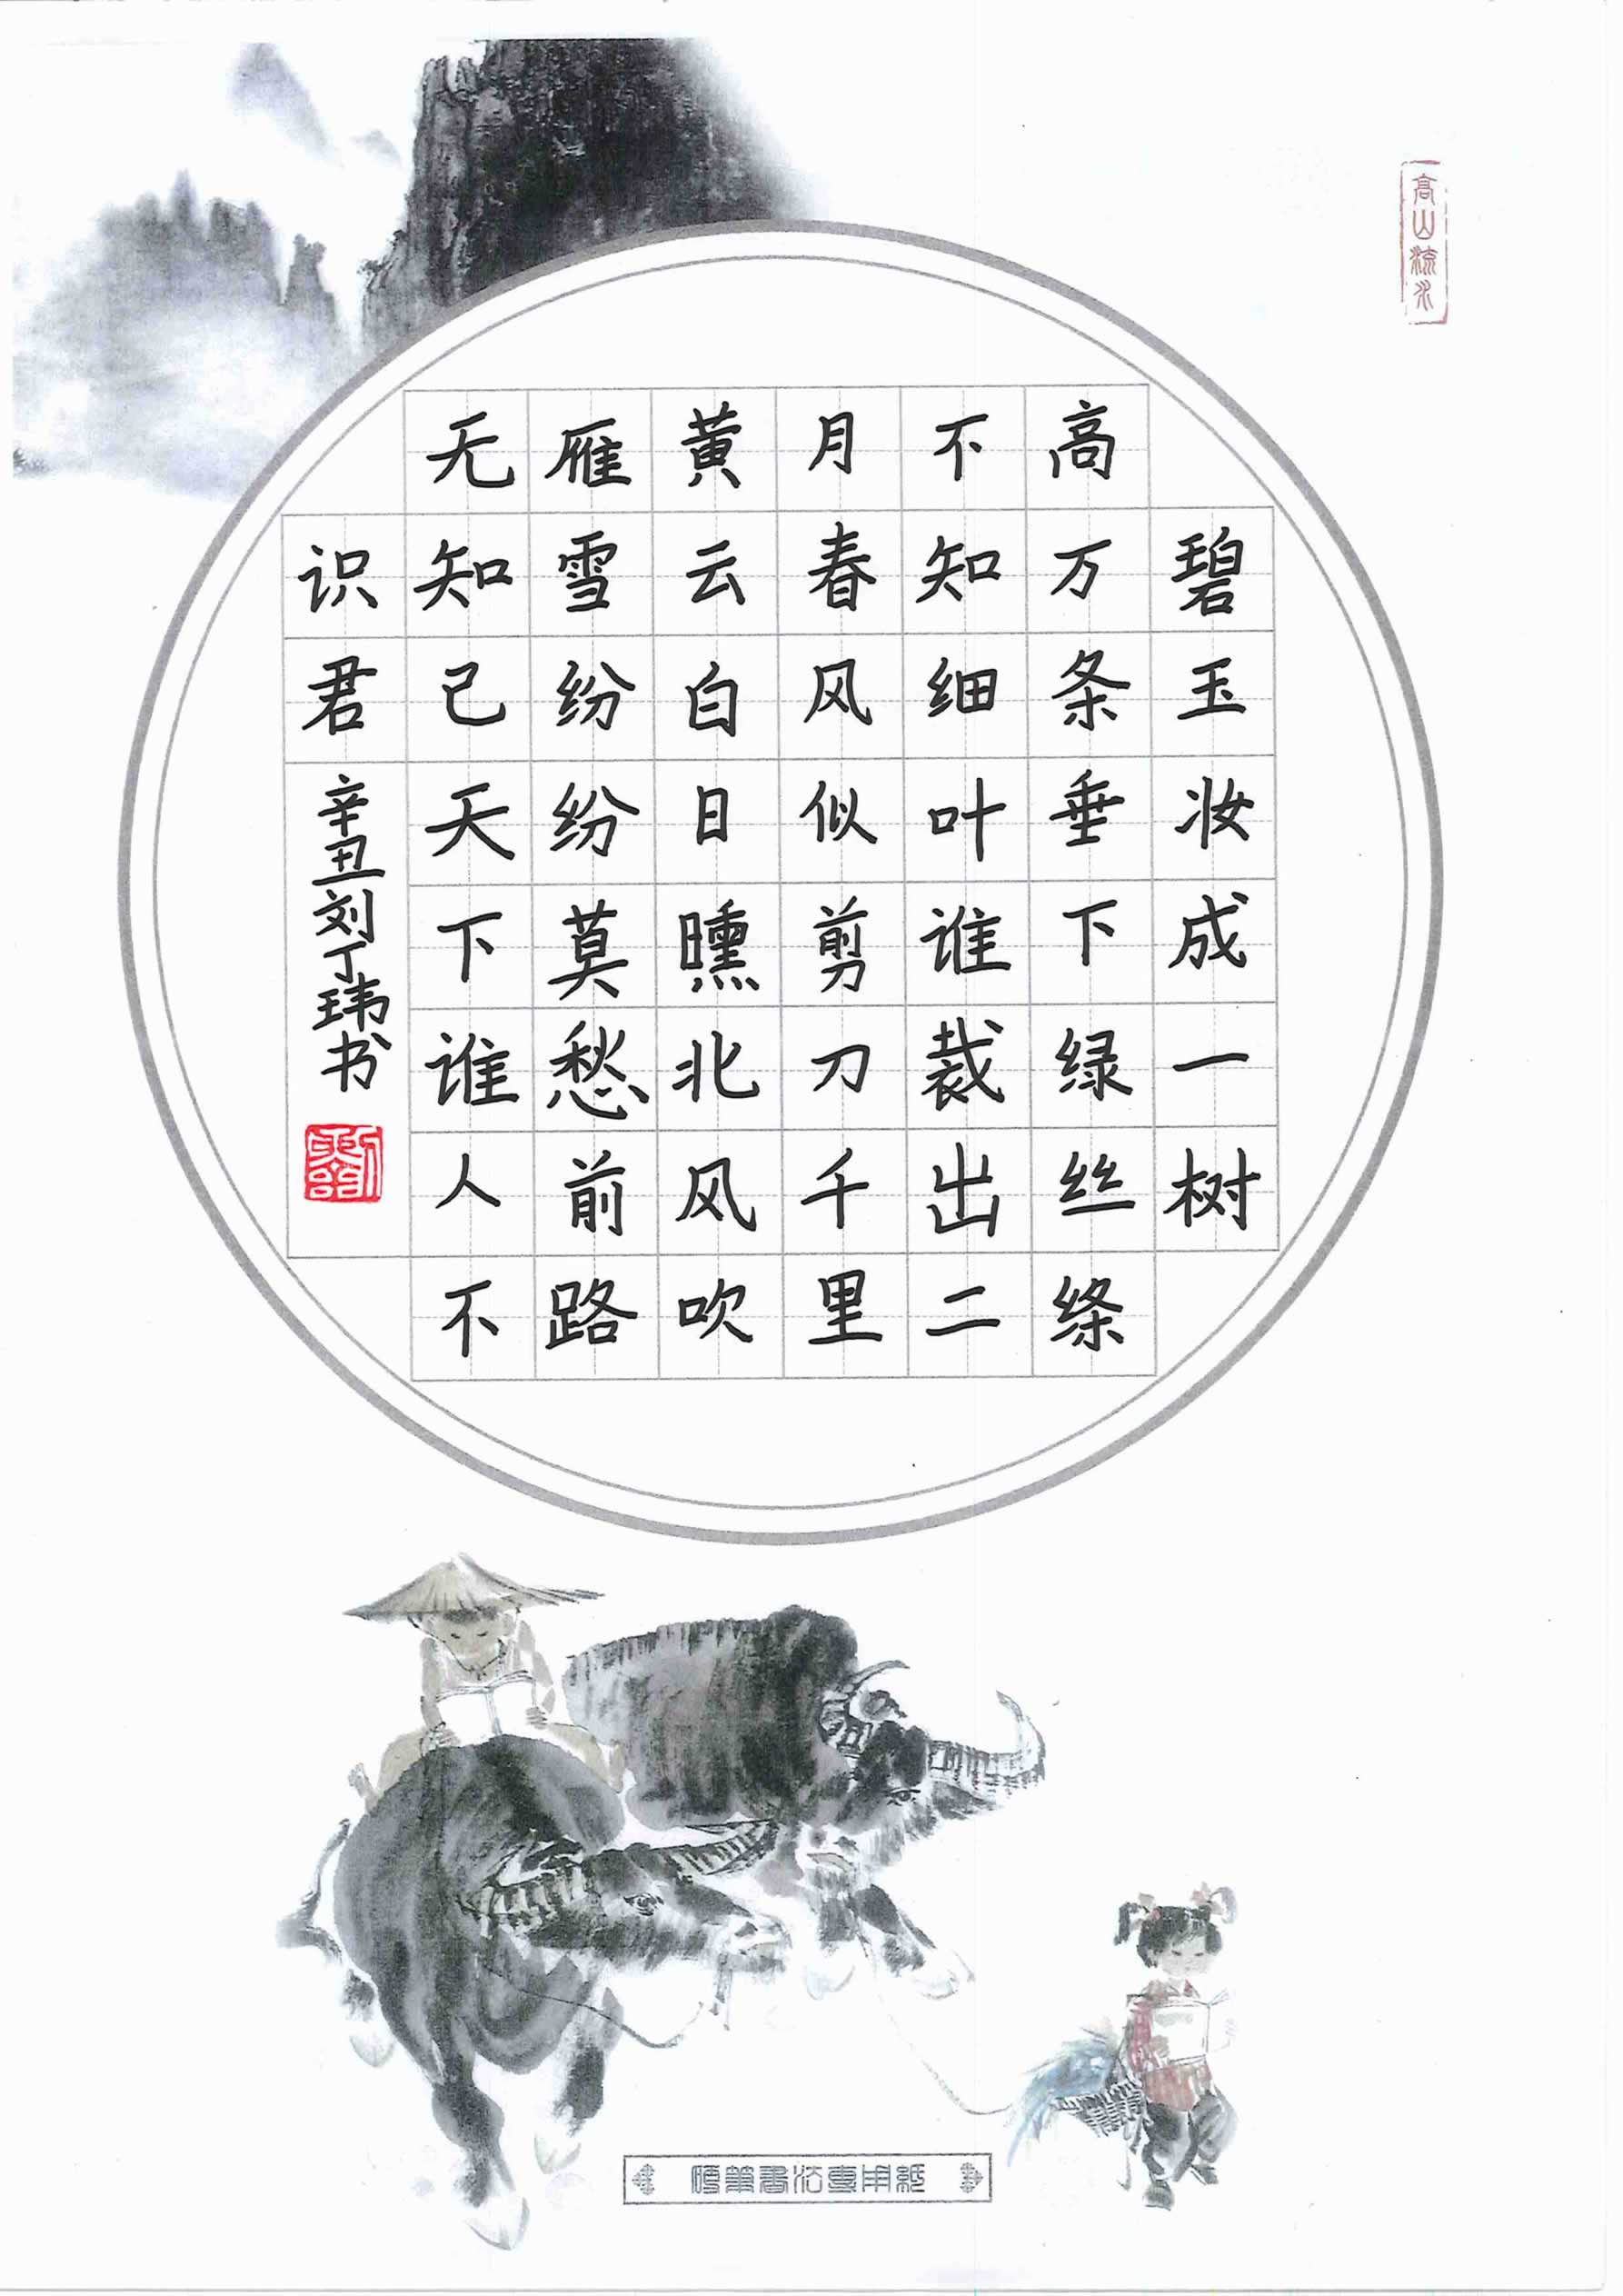 高山流水
碧玉妆成一树
高万条垂下绿丝绦
不知细叶谁裁出二
月春风似剪刀千里
黄云白日曛北风吹
雁雪纷纷莫愁前路
无知己天下谁人不
识君
辛丑刘丁玮书
硬筆書法專用紙